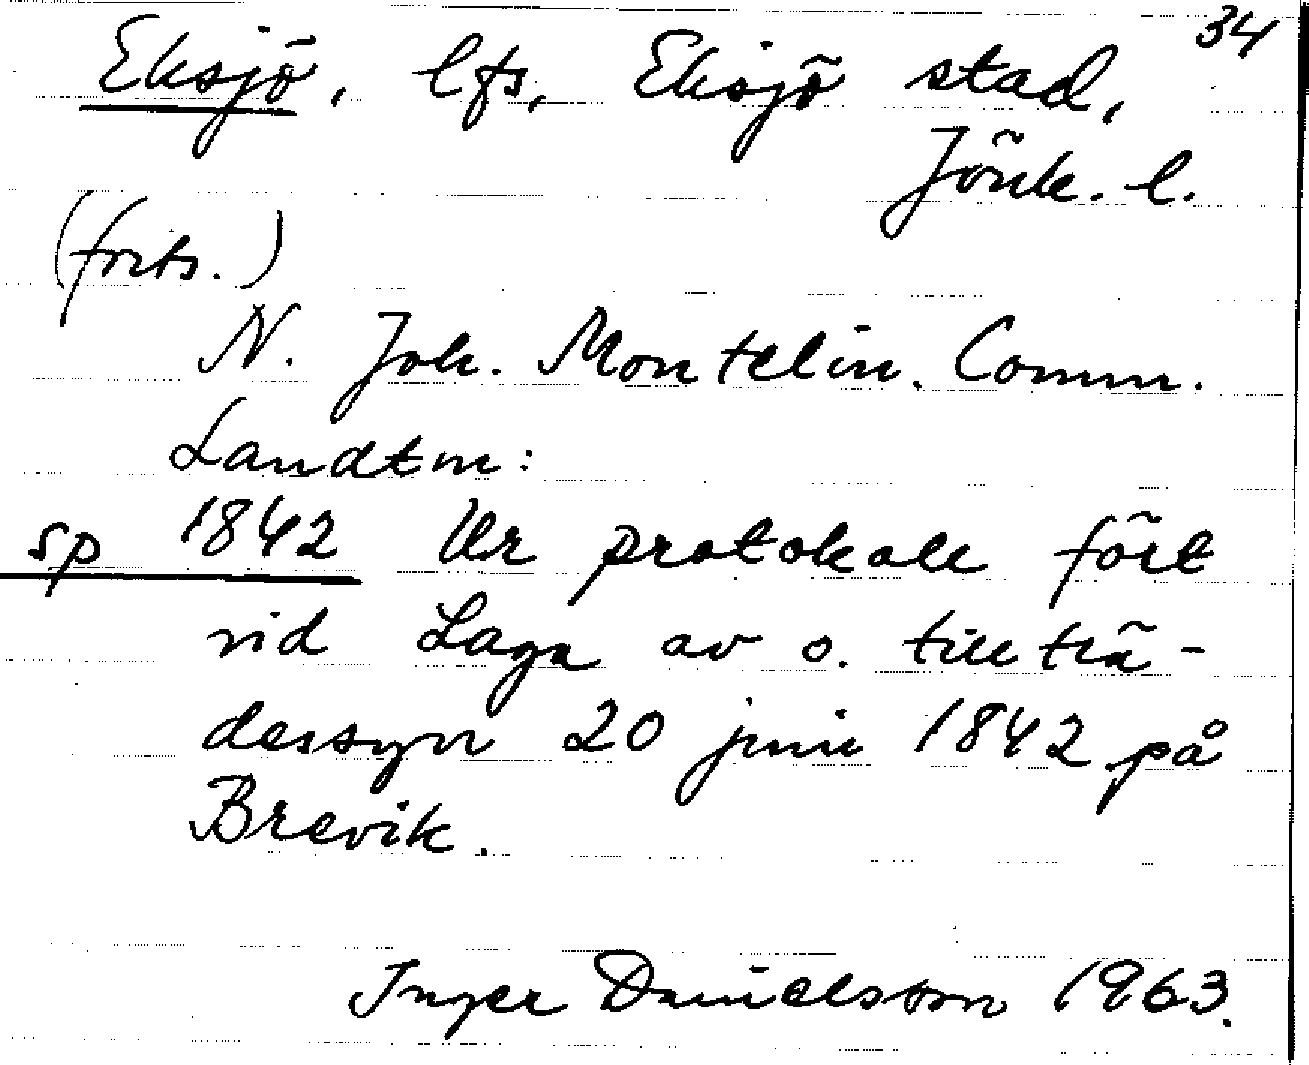 34
Eksjö, lfs, Eksjö stad,
Jönk. l.
(forts.)
N. Joh. Montelin. Comm.
Landtm:
sp 1842 Ur protokoll fört
vid Laga av o. tillträ-
dessyn 20 juni 1842 på
Brevik.
Inger Danielsson 1963.